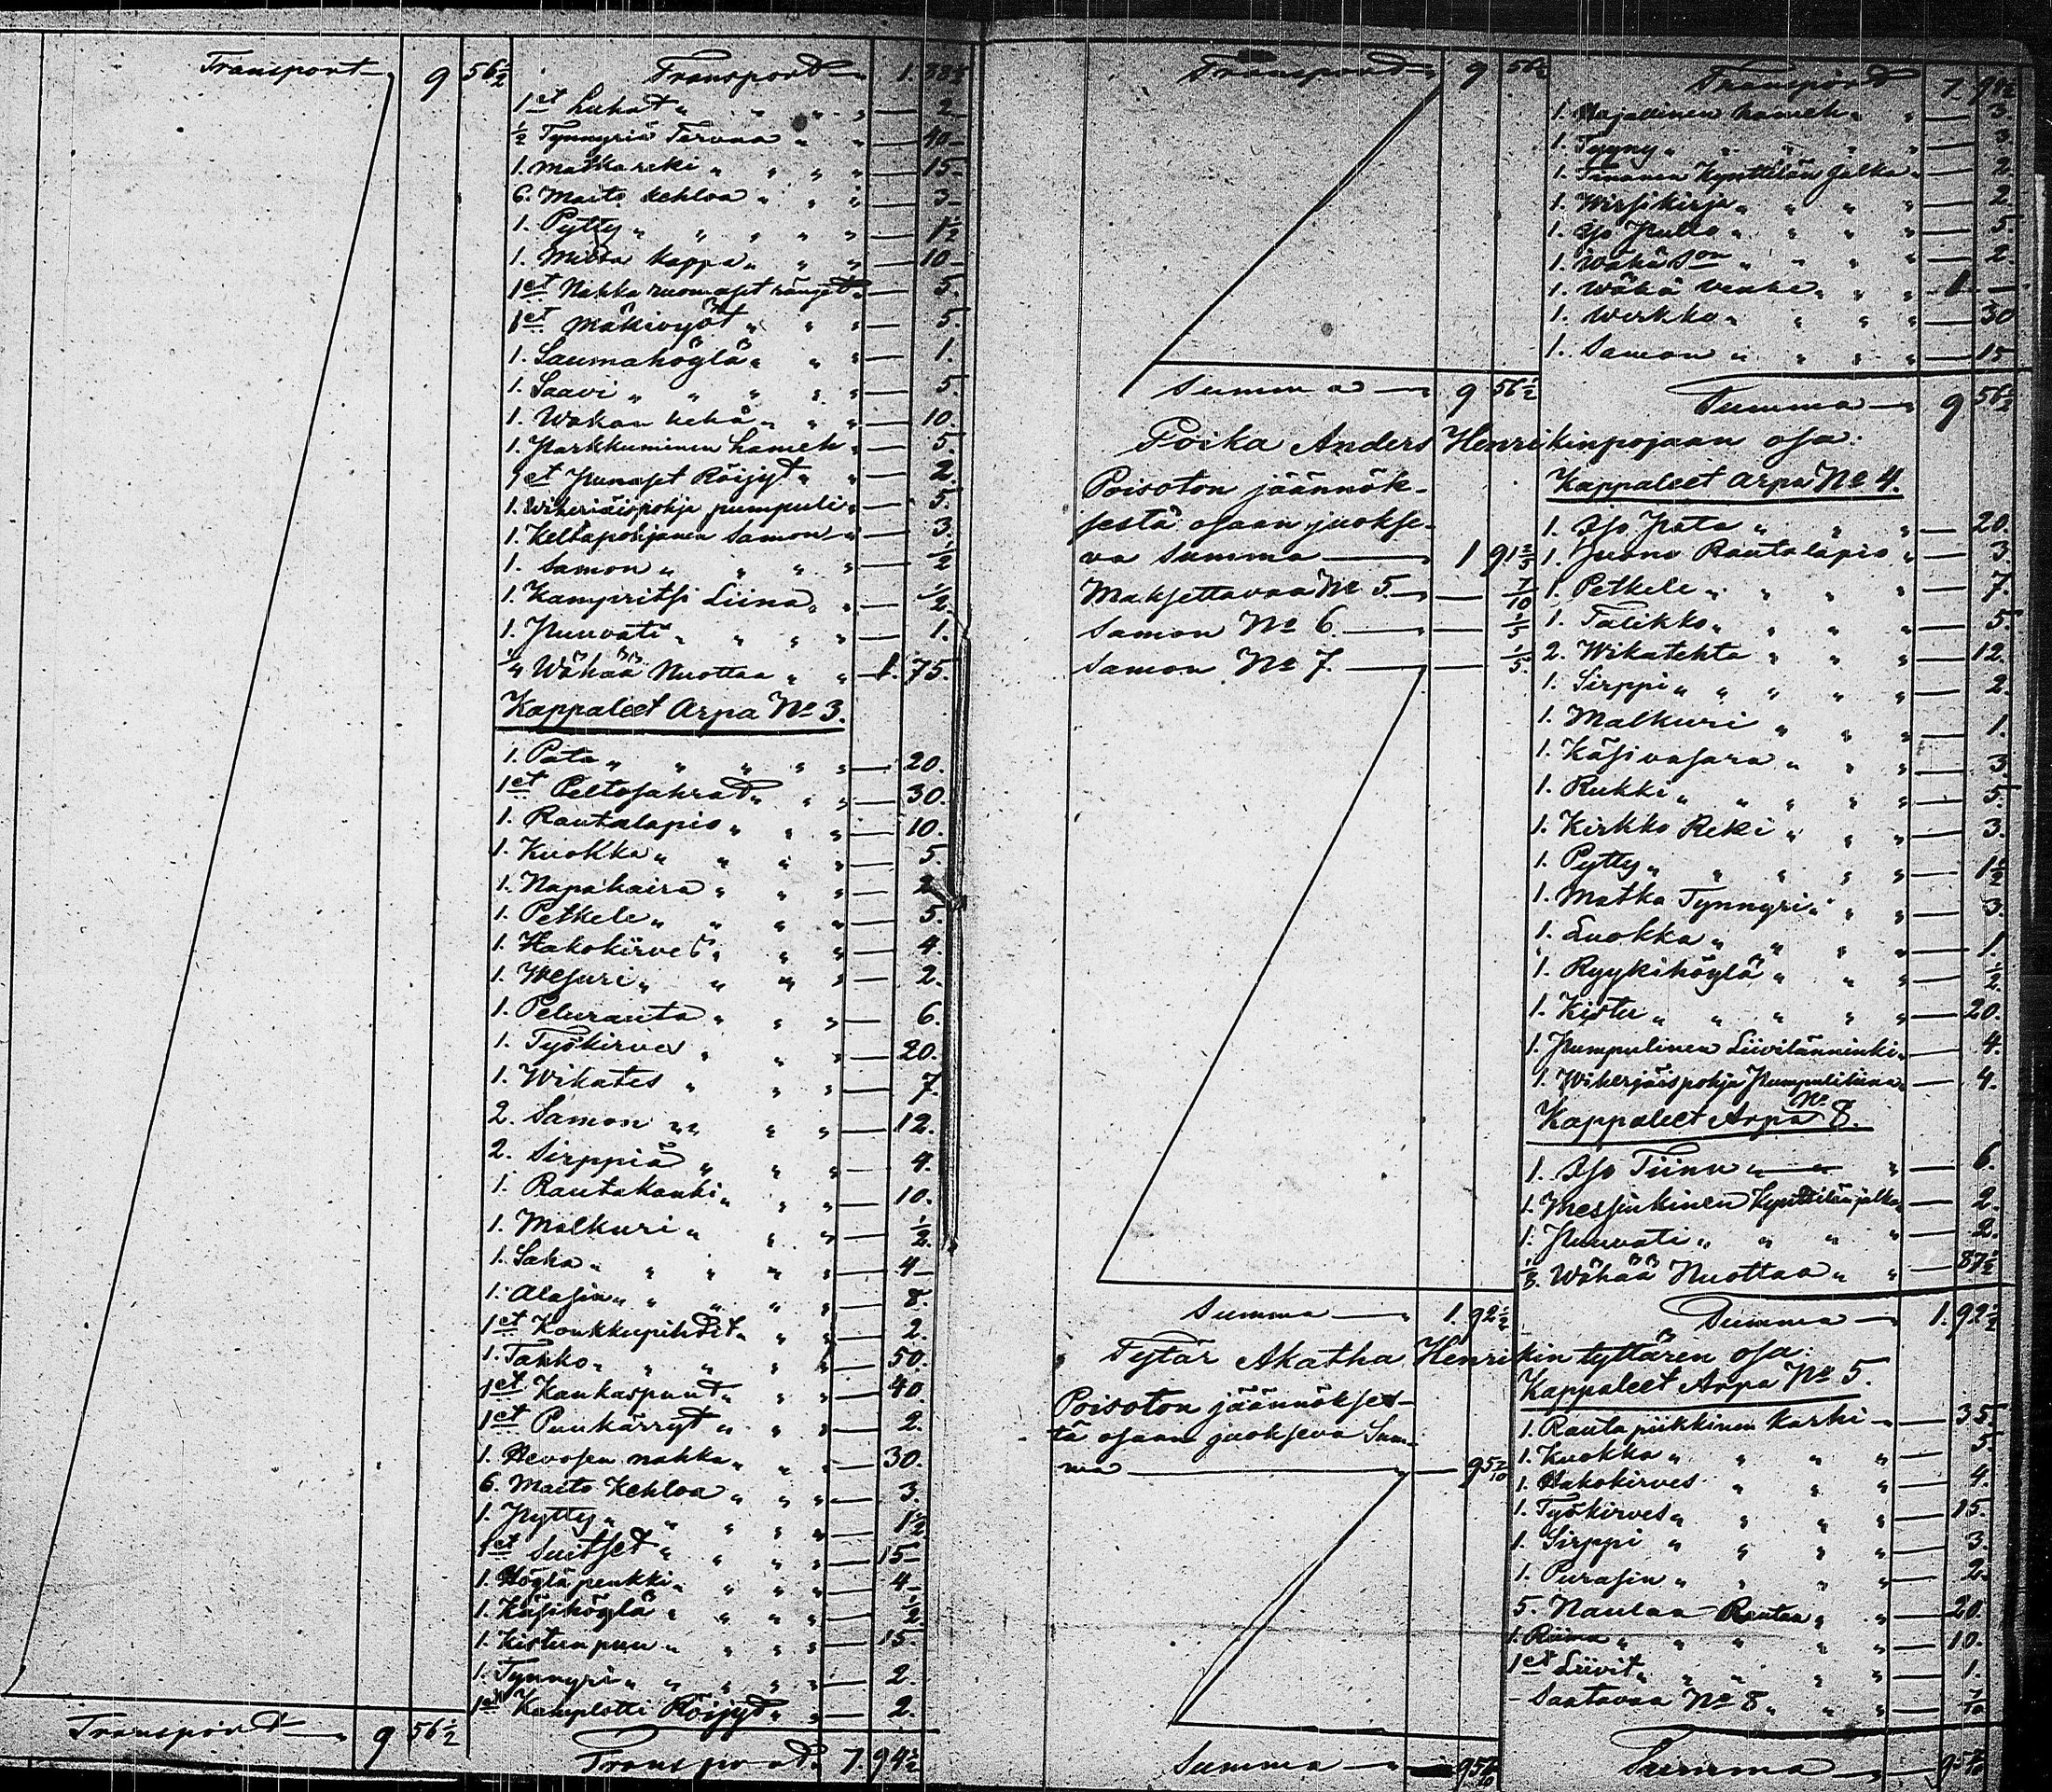 Transport 9 56 1/2
Transport 9 56 1/2
Transport
1 et Luhat 2
1/2 Tynnyriä Tervaa 40
1. Matkareki 15
6. Maito kehloa 3
1. Pytty 1 1/2
1. Mitta kappa 10
1 et Nahka ruomaset ränget 5.
1 et Mäkivyöt 5.
1. Saumahöylä 1.
1. Saavi 5.
1. Wakan kehä 10.
1. Parkkuminen hameh 5.
1 et Punaset Röijyt 2.
1. Wiheriäispohja pumpuli 5.
1. Keltapohjanen Samon 3.
1. Samon 1/2
1. Kampritsi Liina 1/2
1. Puuvati 1.
1/4 Wähää Nuottaa 1. 75.
Kappaleet Arpa No 3.
1. Pata 20.
1 et Peltosahrat 30.
1. Rautalapio 10.
1. Kuokka 5.
1. Napakaira 2
1. Petkele 5.
1. Hakokirves 4.
1. Wesuri 2.
1. Pelurauta 6.
1. Työkirves 20.
1. Wikates 7.
2. Samon 12.
2. Sirppiä 4.
1. Rautakanki 10.
1. Malkuri 1/2
1. Saha 4
1. Alasin 8.
1 et Koukkupihdit 2.
1. Tahko 50.
1 et Kankaspuut 40.
1 et Puukärryt 2.
1. Hevosen nahka 30.
6. Maito Kehloa 3.
1. Pytty 1 1/2
1 et Suitset 15
1. Höyläpenkki 4
1. Käsihöylä 1/2
1. Kistun puu 15.
1. Tynnyri 2.
1 et Kamplotti Röijyt 2.
Transport 7. 94 1/2
Transport 9 56 1/2
Summa 9 56 1/2
Transport 7
1. Hajallinen hameh 3
1. Tyyny 3.
1. Tinanen Kynttilän Jalka 2
1. Wirsikirja 2
1. Iso Pullo 5.
1. Wähä Son 2.
1. Wähä Venhe 1
1. Werkko 30
1. Samon 15
Summa 9 56 1/2
Poika Anders Henrikinpojaan osa:
Poisoton jäännök-
sestä osaan juokse-
va Summa 1 91 2/5
Maksettavaa No 5. 7/10
Samon No 6. 1/5
Samon No 7. 1/5.
Summa 1. 92 1/2
Kappaleet Arpa No 4.
1. Iso Pata 20.
1. Juono Rautalapio 3.
1. Petkele 7.
1. Talikko 5.
2. Wikatehta 12.
1. Sirppi 2.
1. Malkuri 1.
1. Käsivasara 3.
1. Rukki 5.
1. Kirkko Reki 3.
1. Pytty 1 1/2
1. Matka Tynnyri 3.
1. Luokka 1.
1. Ryykihöylä 1/2.
1. Kistu 20.
1. Pumpulinen Liivilänninki 4.
1. Wiherjäispohja Pumpuliliina 4.
Kappaleet Arpa No 8.
1. Iso Tiinu 6.
1. Messinkinen Kynttilän jalka 2.
1. Puuvati 2.
1/8. Wähää Nuottaa 87 1/2
Summa 1. 92 1/2
Tytär Akatha Henrikin tyttären osa:
Poisoton jäännökses-
tä osaan juokseva Sum-
ma 95 7/10
Summa 95 7/10
Kappaleet Arpa No 5.
1. Rautapiikkinen Karhi 35.
1. Kuokka 5.
1. Hakokirves 4.
1. Työkirves 15.
1. Sirppi 3.
1. Purasin 2.
5. Naulaa Rautaa 20.
1. Riima 10.
1 et Liivit 1.
Saatavaa No 8. 7/10
Summa 95 7/10